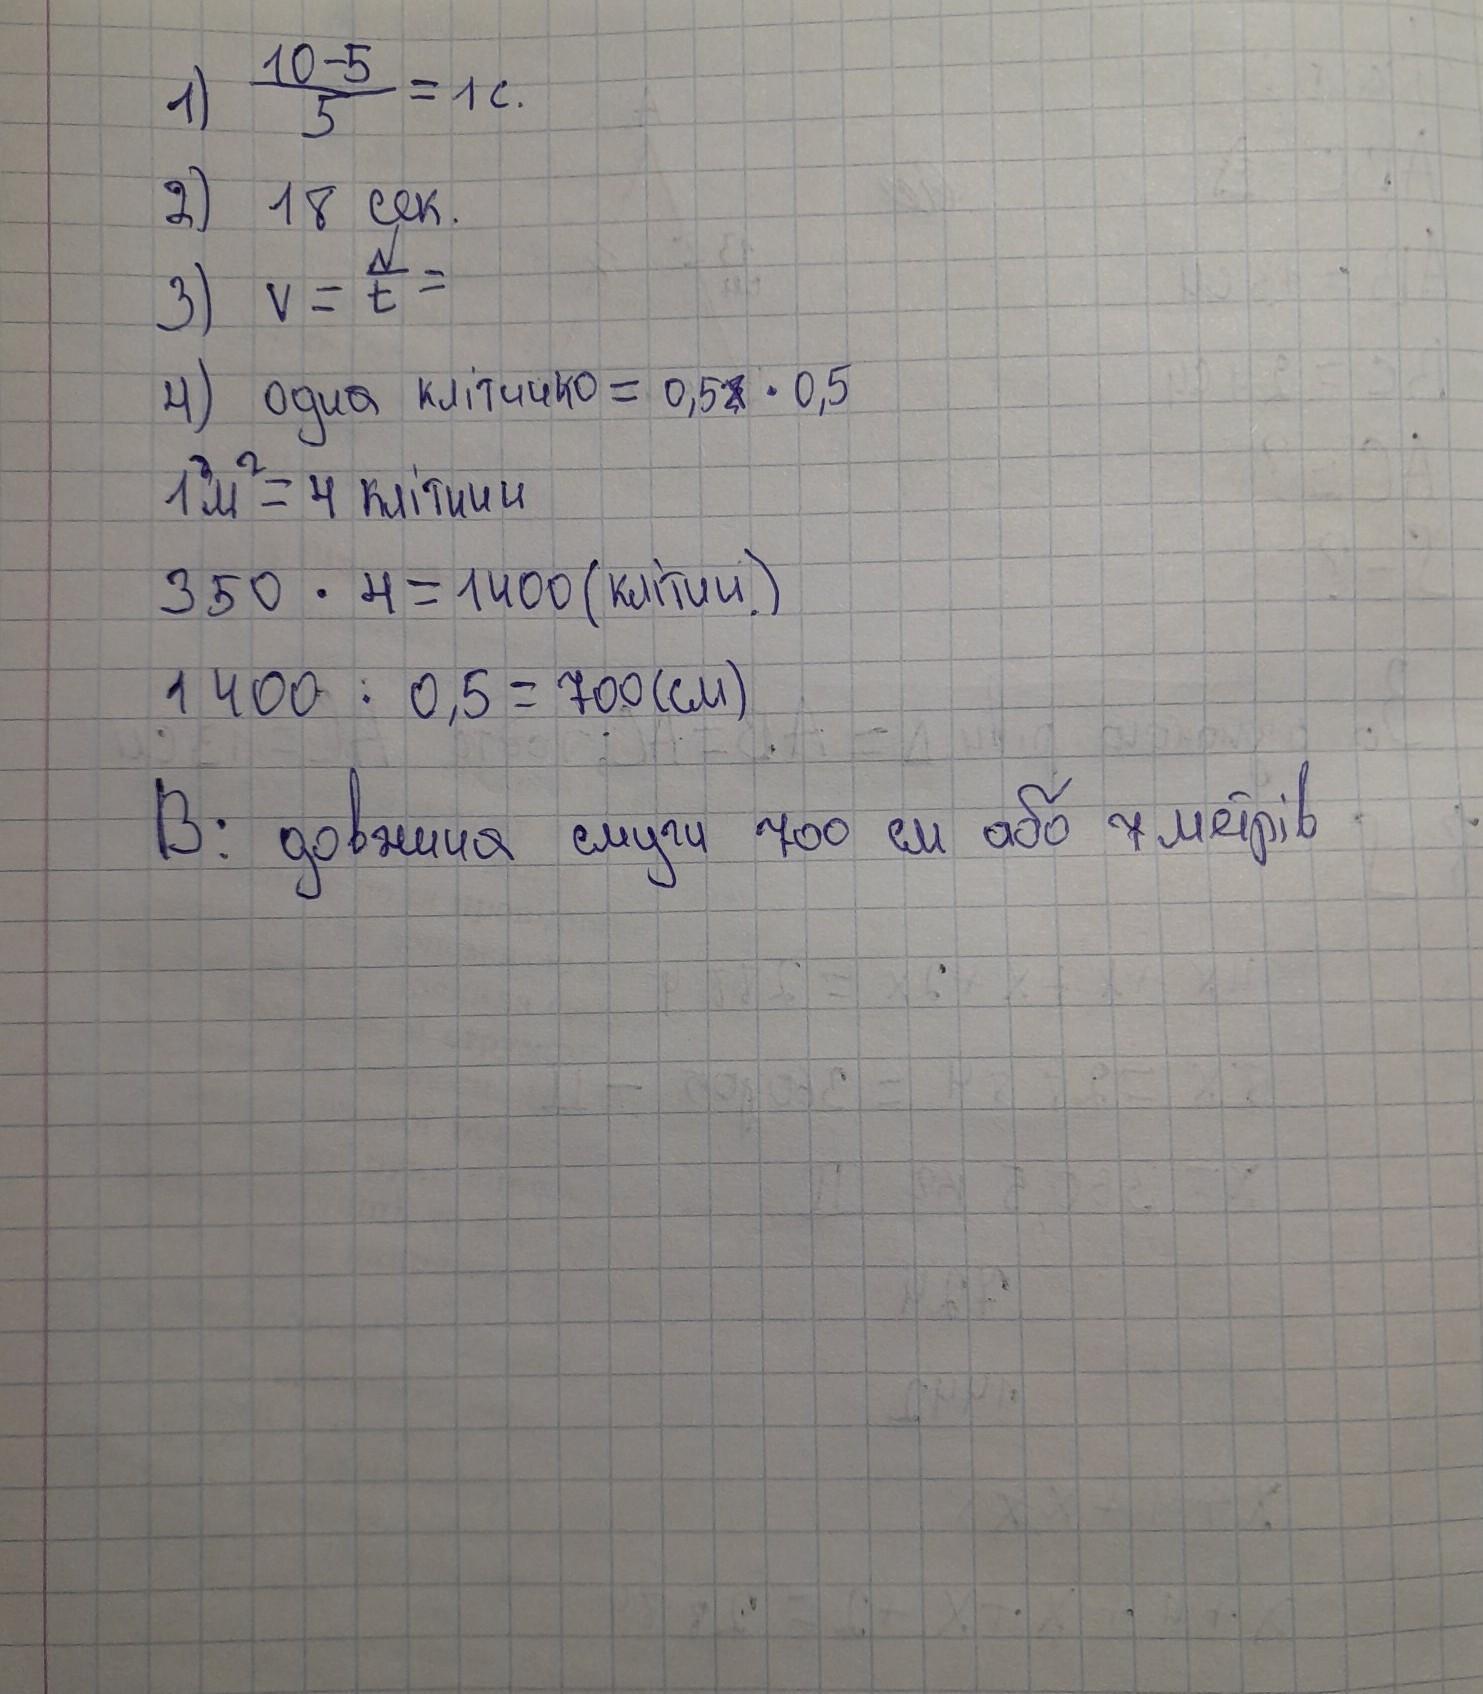 1) 10-5/5 = 1 с.
2) 18 сек.
3) v = N/t =
4) одна клітинко = 0,5 · 0,5
1 м² = 4 клітини
350 · 4 = 1400 (клітин.)
1400 : 0,5 = 700 (см)
В: довжина смуги 700 см або 7 метрів